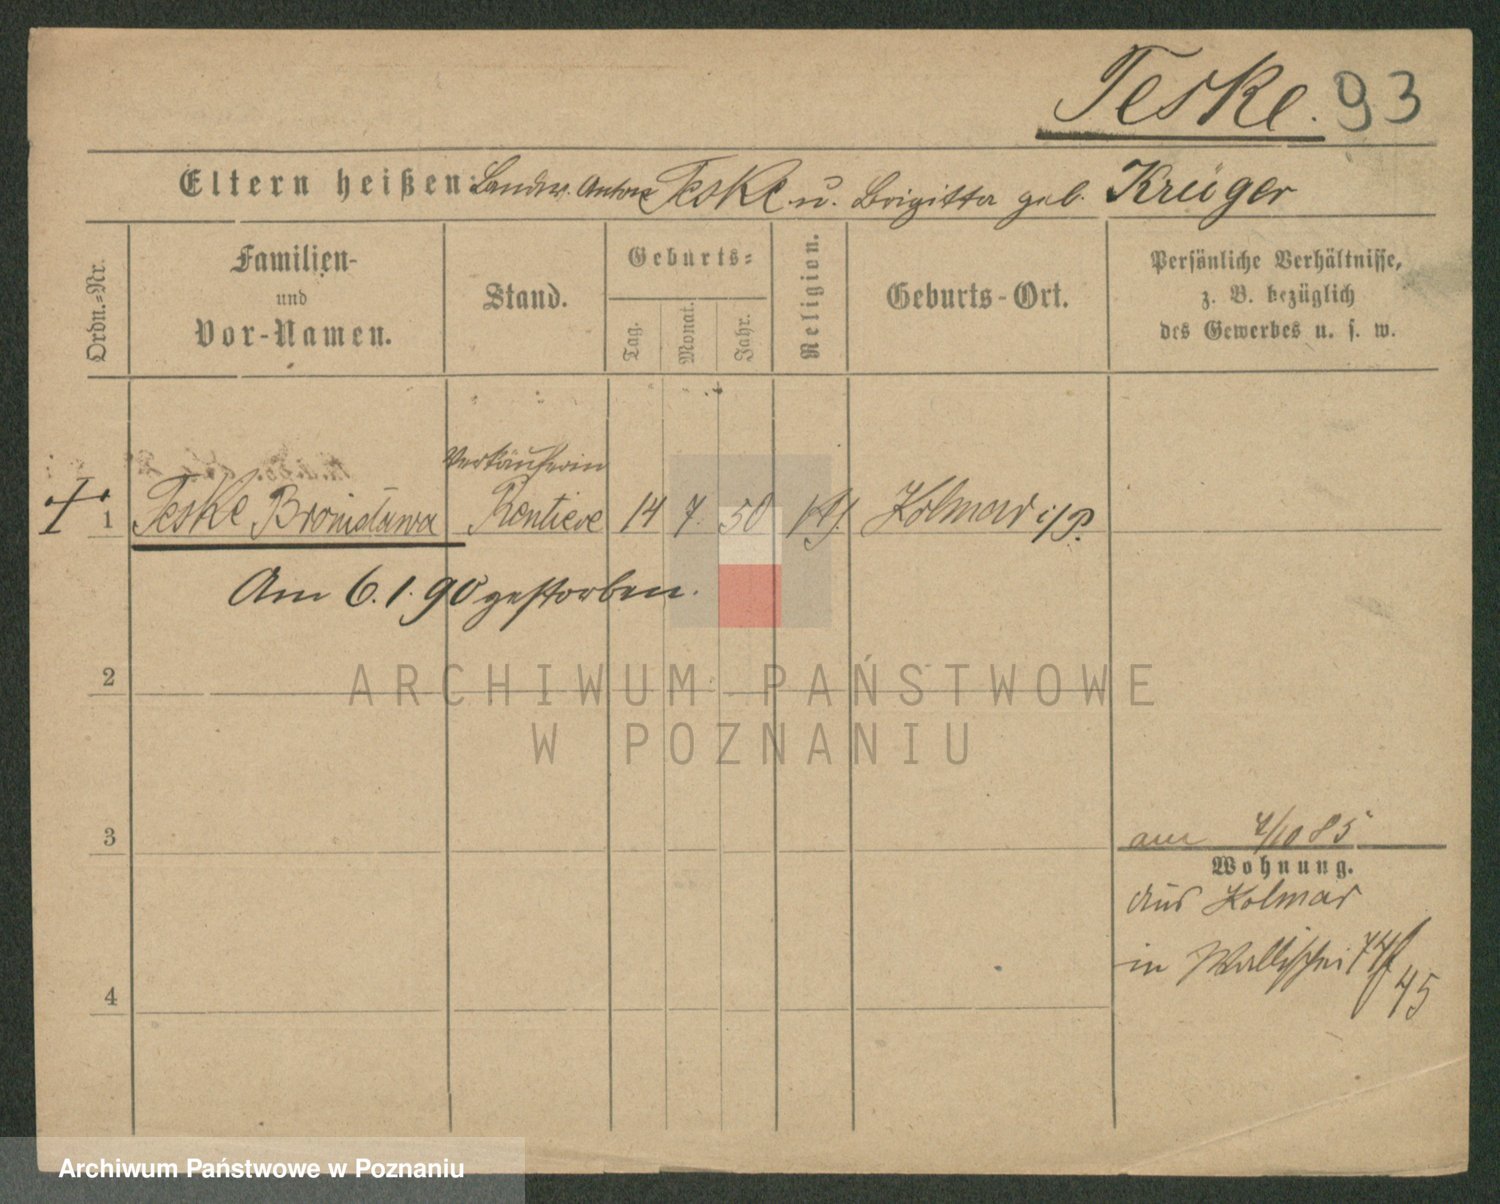 Teske. 93
Eltern heißen: Landw. Anton Teske u. Brigitta geb. Krüger
Ordn.-Nr.
Familien-
und
Vor-Namen.
Stand.
Geburts-
Tag.
Monat.
Jahr.
Religion.
Geburts-Ort.
Persönliche Verhältnisse,
z. B. bezüglich
des Gewerbes u. s. w.
Verkäuferin
1 Teske Bronislawa Rentiere 14 7. 50 Kolmar i/P.
Am 6.1.90 gestorben.
2
ARCHIWUM PAŃSTWOWE
W POZNANIU
3
am 7/10 85
Wohnung.
aus Kolmar
in Wallischei 74/
45
4
Archiwum Państwowe w Poznaniu